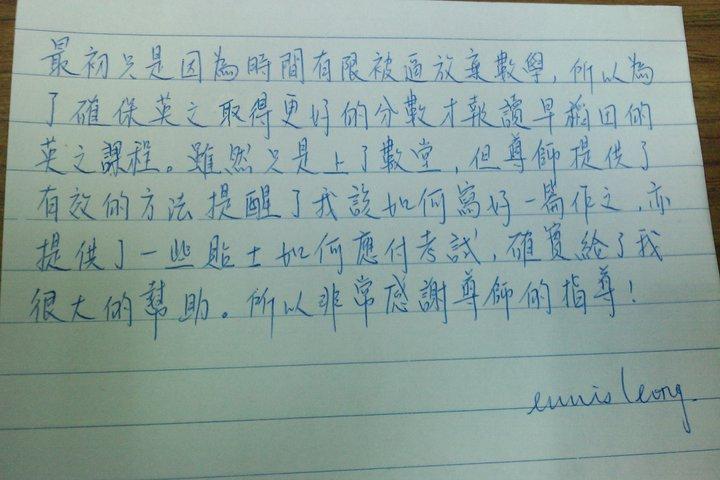 最初只是因為時間有限被逼放棄數學，所以為
了確保英文取得更好的分數才報讀早稻田的
英文課程。雖然只是上了數堂，但導師提供了
有效的方法提醒了我該如何寫好一篇作文，亦
提供了一些貼士如何應付考試，確實給了我
很大的幫助。所以非常感謝導師的指導！
ennis leong